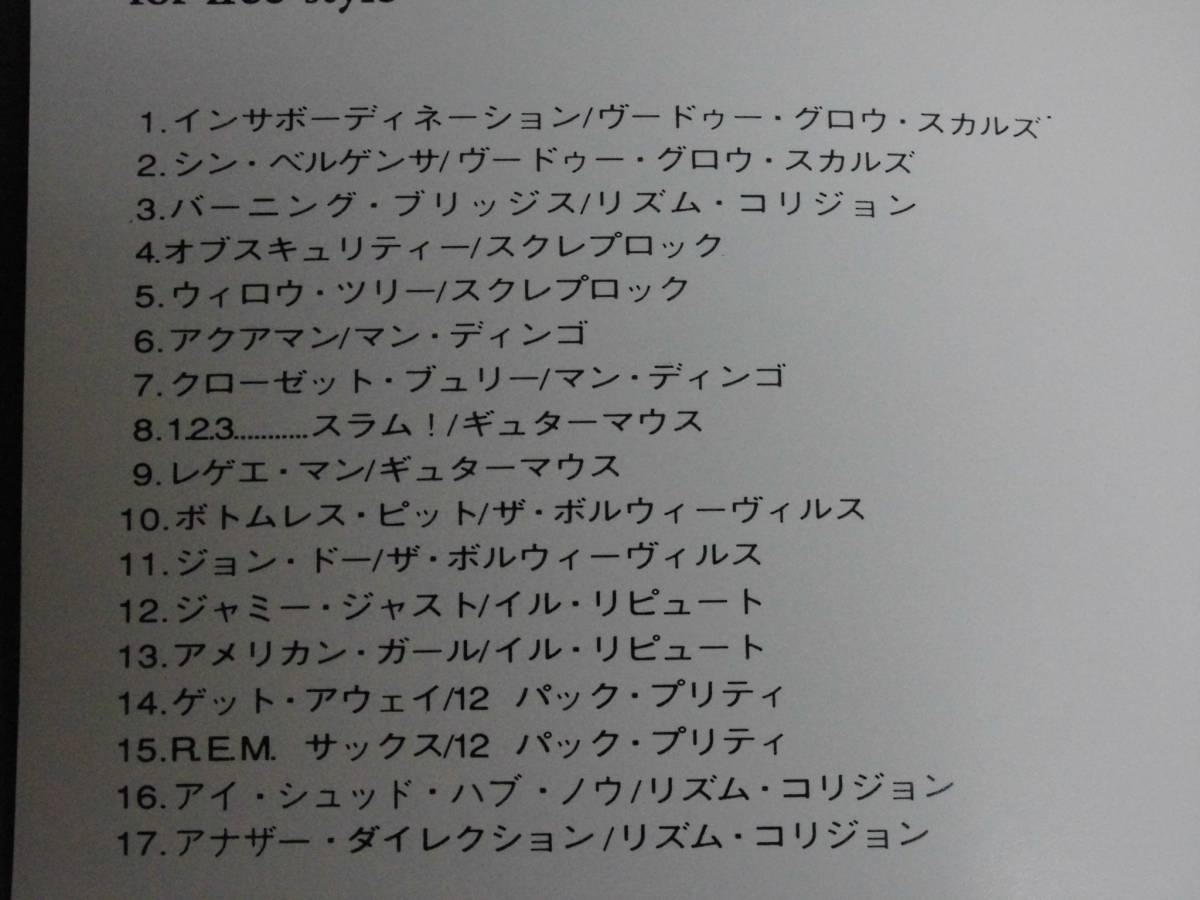 for free style
1.インサボーディネーション/ヴードゥー・グロウ・スカルズ
2.シン・ベルゲンサ/ヴードゥー・グロウ・スカルズ
3.バーニング・ブリッジス/リズム・コリジョン
4.オブスキュリティー/スクレプロック
5.ウィロウ・ツリー/スクレプロック
6.アクアマン/マン・ディンゴ
7.クローゼット・ブュリー/マン・ディンゴ
8.1.2.3...........スラム！/ギュターマウス
9.レゲエ・マン/ギュターマウス
10.ボトムレス・ピット/ザ・ボルウィーヴィルス
11.ジョン・ドー/ザ・ボルウィーヴィルス
12.ジャミー・ジャスト/イル・リピュート
13.アメリカン・ガール/イル・リピュート
14.ゲット・アウェイ/12 パック・プリティ
15.R.E.M. サックス/12 パック・プリティ
16.アイ・シュッド・ハブ・ノウ/リズム・コリジョン
17.アナザー・ダイレクション/リズム・コリジョン